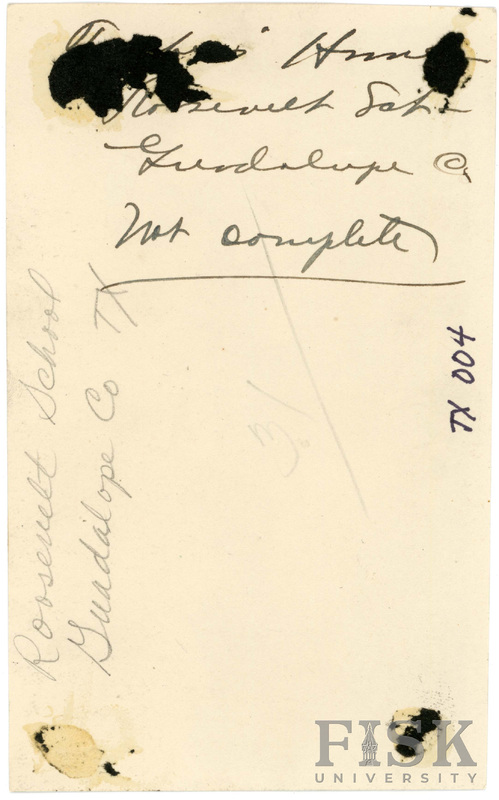 Roosevelt Sch.
Guadalupe Co
Not complete
Roosevelt School
Guadalope Co TX
TX 004
31
FISK
UNIVERSITY